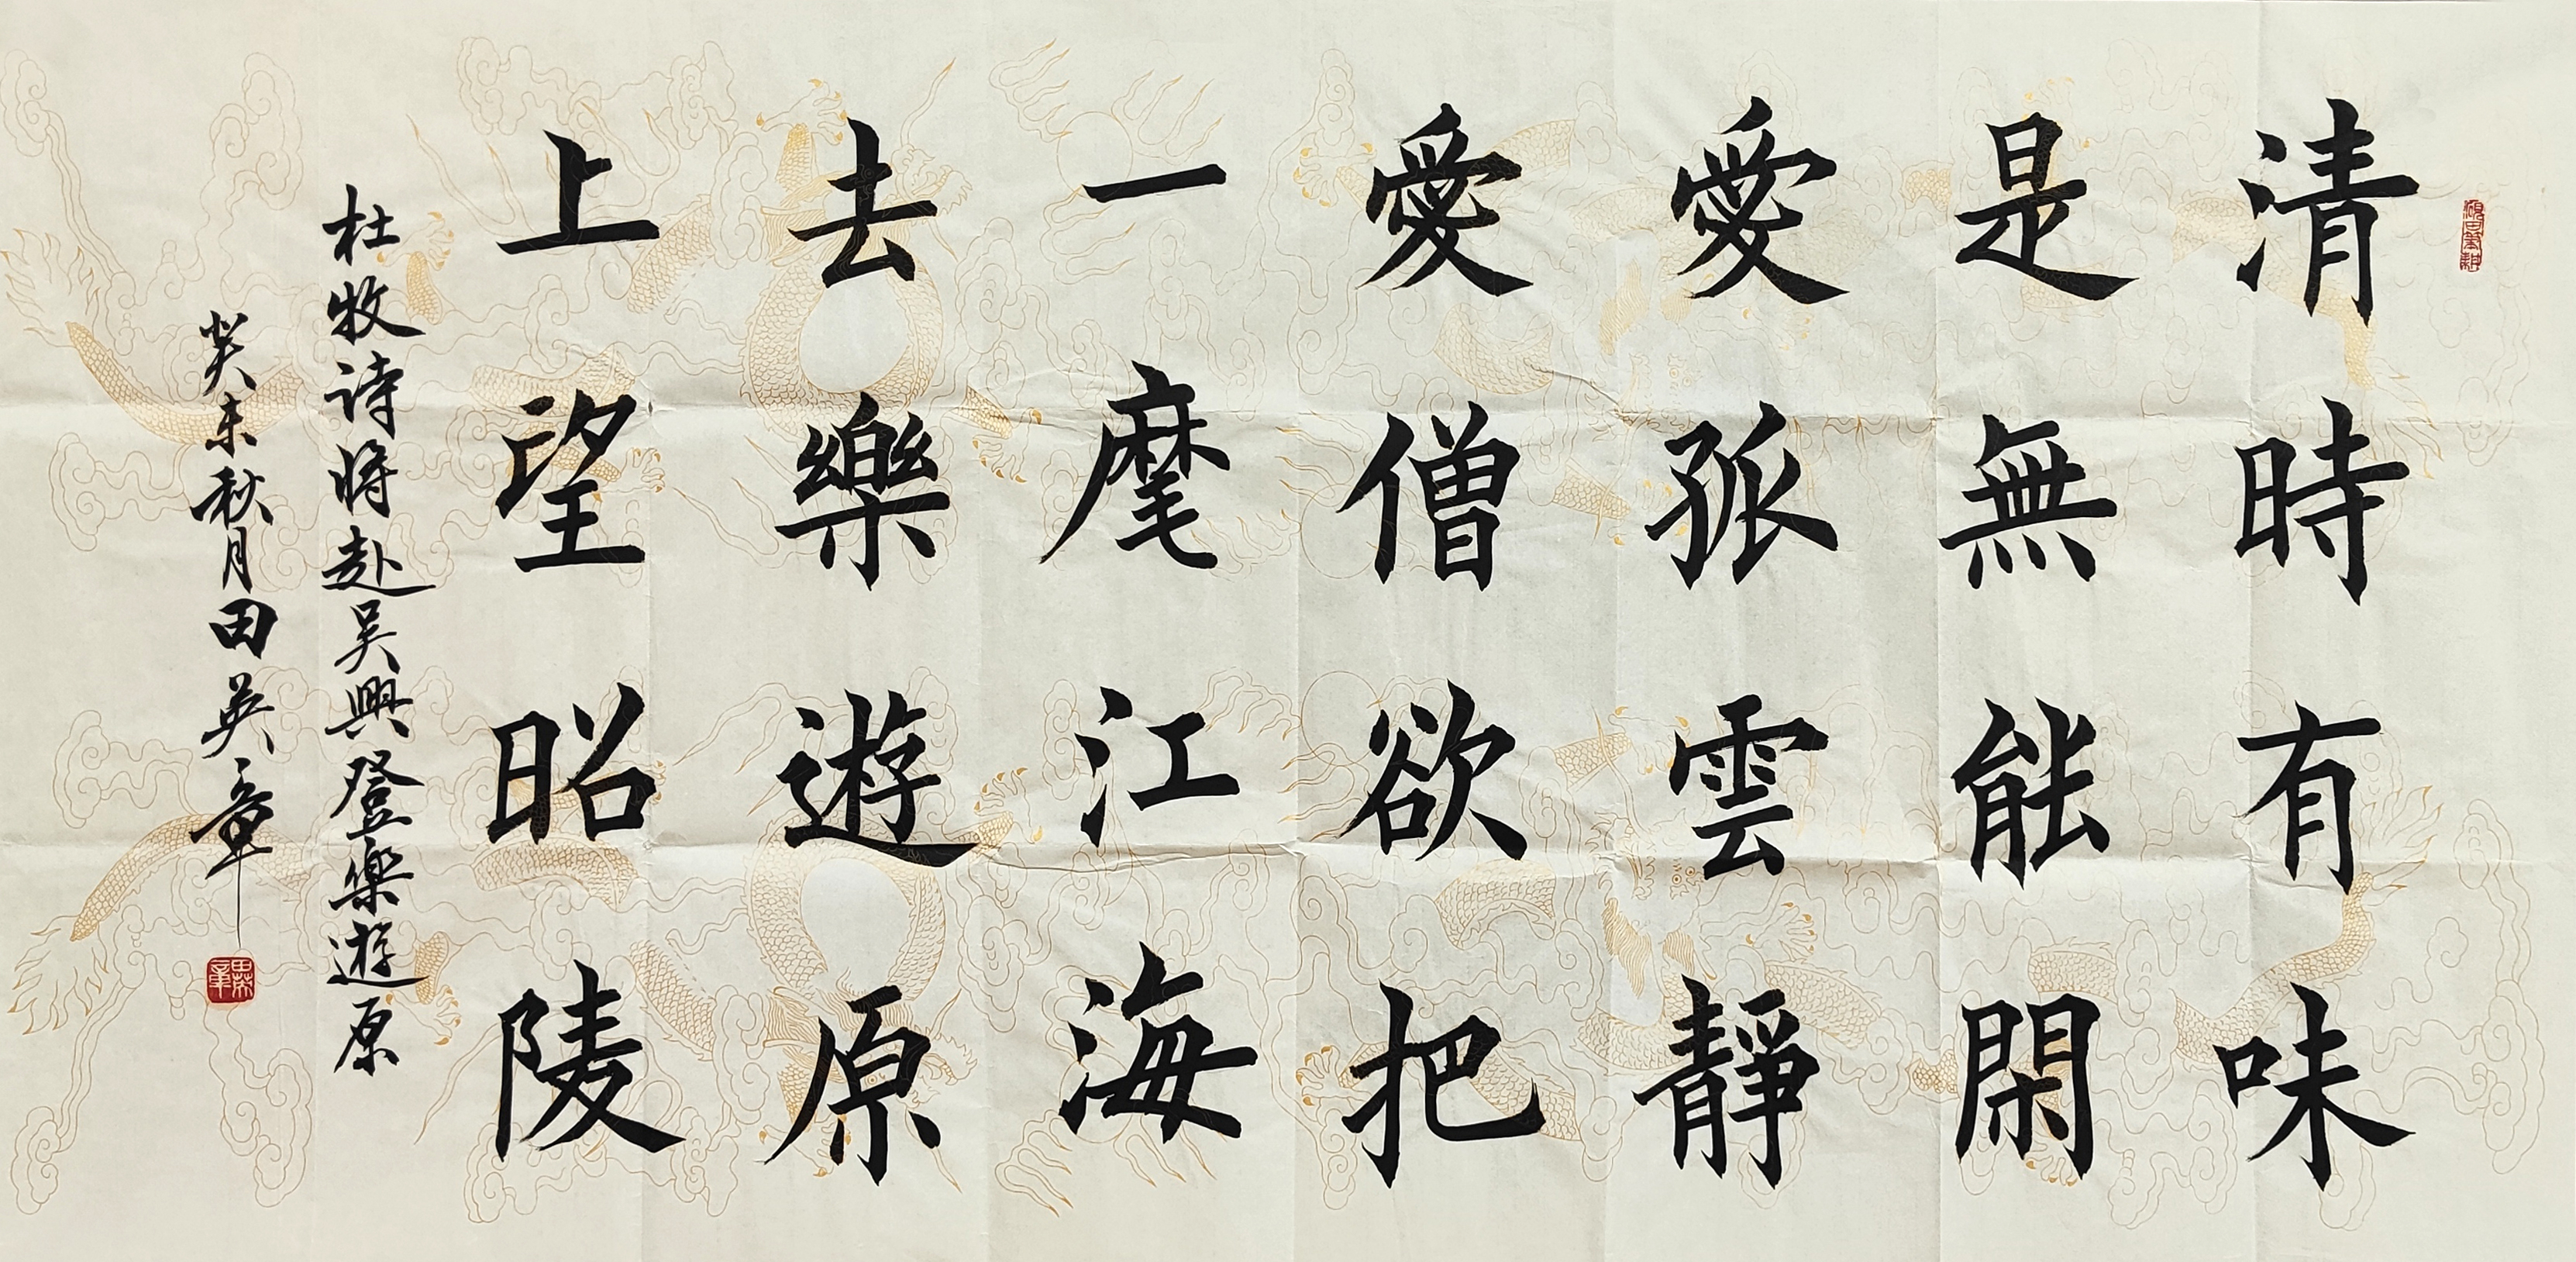 清時有味
是無能閑
愛孤雲靜
愛僧欲把
一麾江海
去樂遊原
上望昭陵
杜牧诗将赴吴興登樂遊原
癸未秋月田英章
田英章